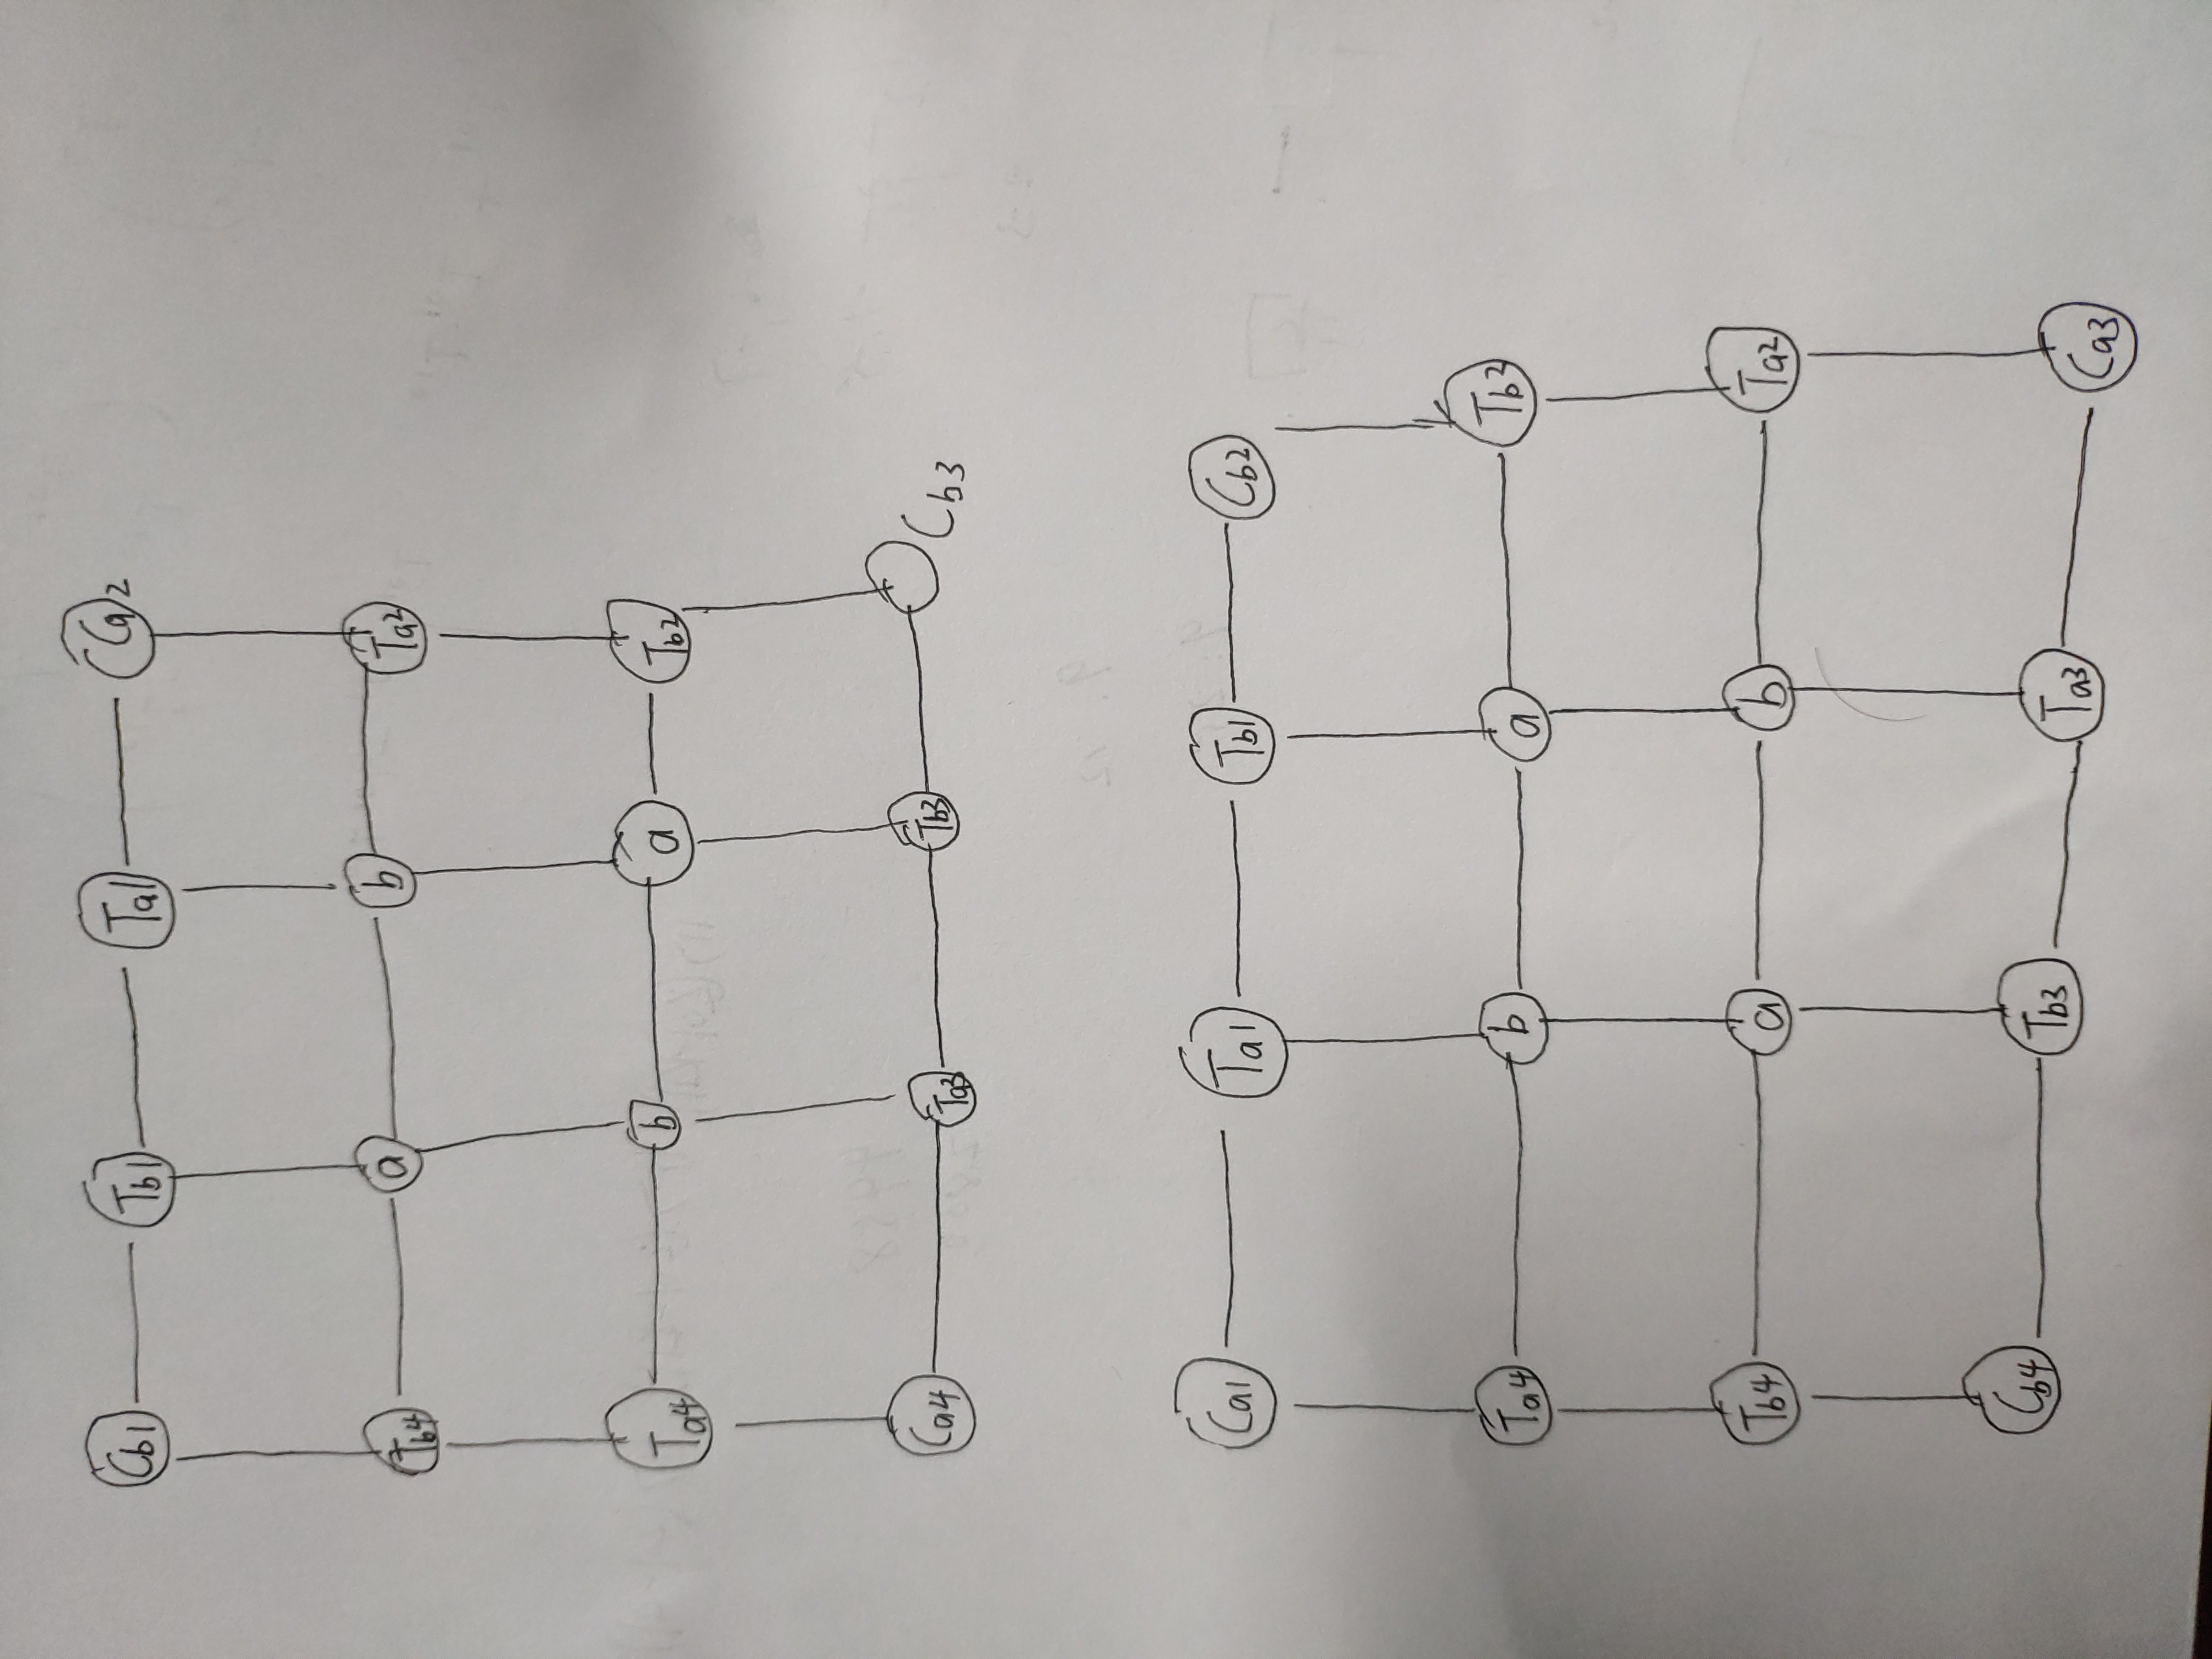 Cb1 Tb1 Ta1 Ca2
Tb4 a b Ta2
Ta4 b a Tb2
Ca4 Ta3 Tb3 Cb3
Ca1 Ta1 Tb1 Cb2
Ta4 b a Tb2
Tb4 a b Ta2
Cb4 Tb3 Ta3 Ca3